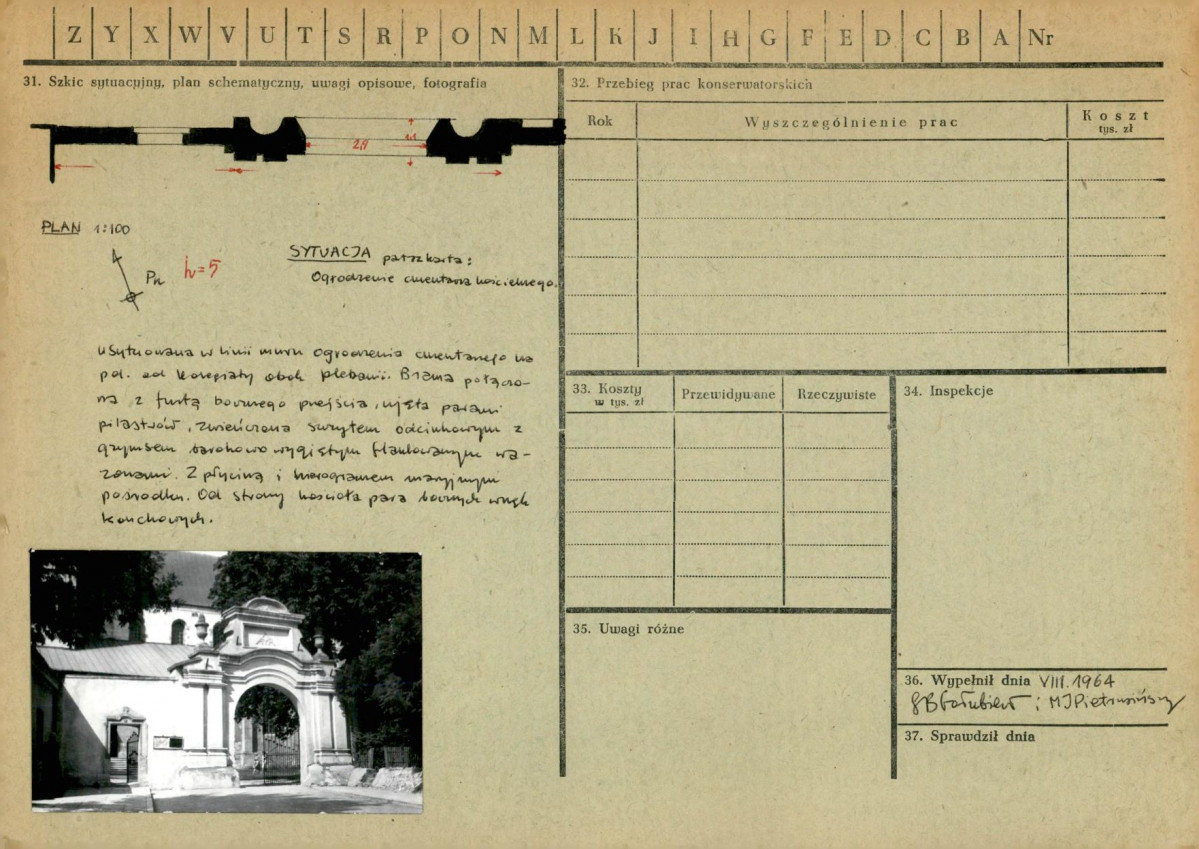 Z Y X W V U T S R P O N M L K J I H G F E D C B A Nr
31. Szkic sytuacyjny, plan schematyczny, uwagi opisowe, fotografia
2,9
PLAN 1:100
Pn h=5
SYTUACJA patrz karta:
Ogrodzenie cmentarza kościelnego.
Usytuowana w linii muru ogrodzenia cmentarnego na
pd. od kolegiaty obok plebanii. Brama połączo-
na z furtą bocznego przejścia, ujęta parami
pilastrów, zwieńczona szczytem odcinkowym z
gzymsem barokowo wygiętym flankowanym wa-
zonami. Z płyciną i monogramem maryjnym
pośrodku. Od strony kościoła para bocznych wnęk
konchowych.
32. Przebieg prac konserwatorskich
Rok Wyszczególnienie prac Koszt
tys. zł
33. Koszty
w tys. zł
Przewidywane Rzeczywiste
34. Inspekcje
35. Uwagi różne
36. Wypełnił dnia VIII.1964
i MJPietrusińscy
37. Sprawdził dnia